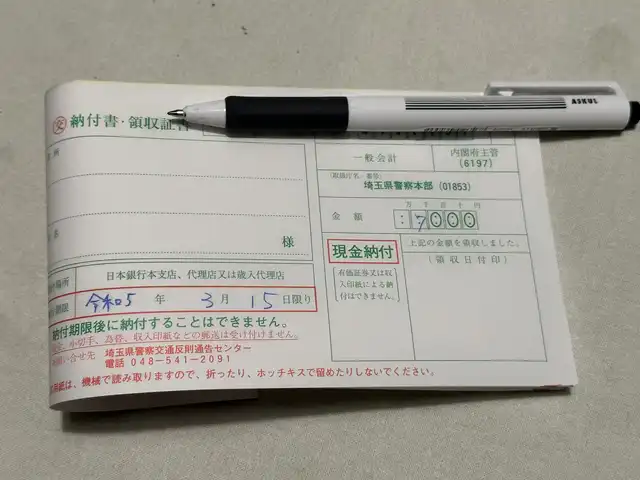 ASKUL
交 納付書・領収証書
一般会計
内閣府主管
(6197)
(取扱庁名・番号)
埼玉県警察本部 (01853)
金額
万 千 百 十 円
7000
様
現金納付
有価証券又は収
入印紙による納
付はできません。
上記の金額を領収しました。
(領収日付印)
場所
日本銀行本支店、代理店又は歳入代理店
期限
令和5 年 3 月 15 日限り
納付期限後に納付することはできません。
小切手、為替、収入印紙などの郵送は受け付けません。
問い合せ先
埼玉県警察交通反則通告センター
電話 048-541-2091
用紙は、機械で読み取りますので、折ったり、ホッチキスで留めたりしないでください。